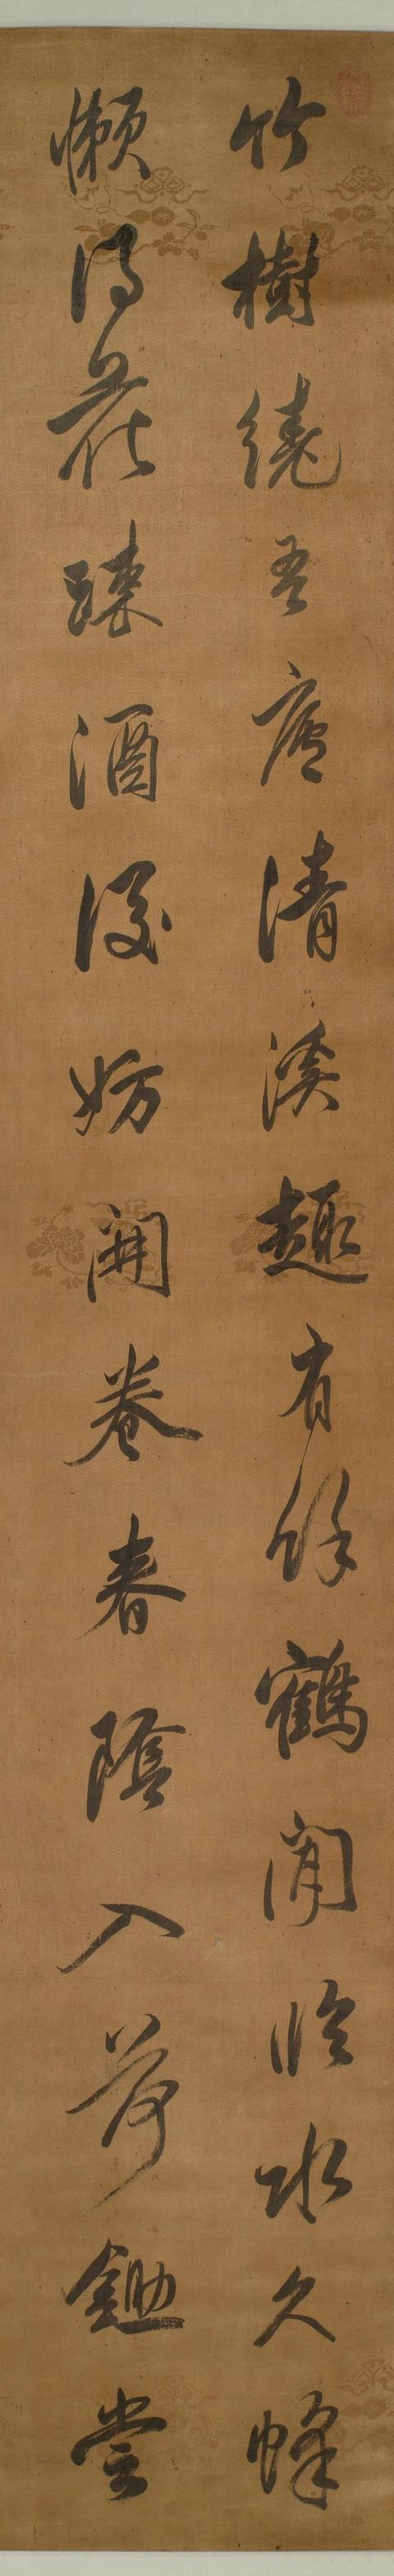 竹樹繞吾廬清溪趣有餘鶴閒臨水久蜂
懶得花疎酒後妨開卷春陰入荷鋤嘗